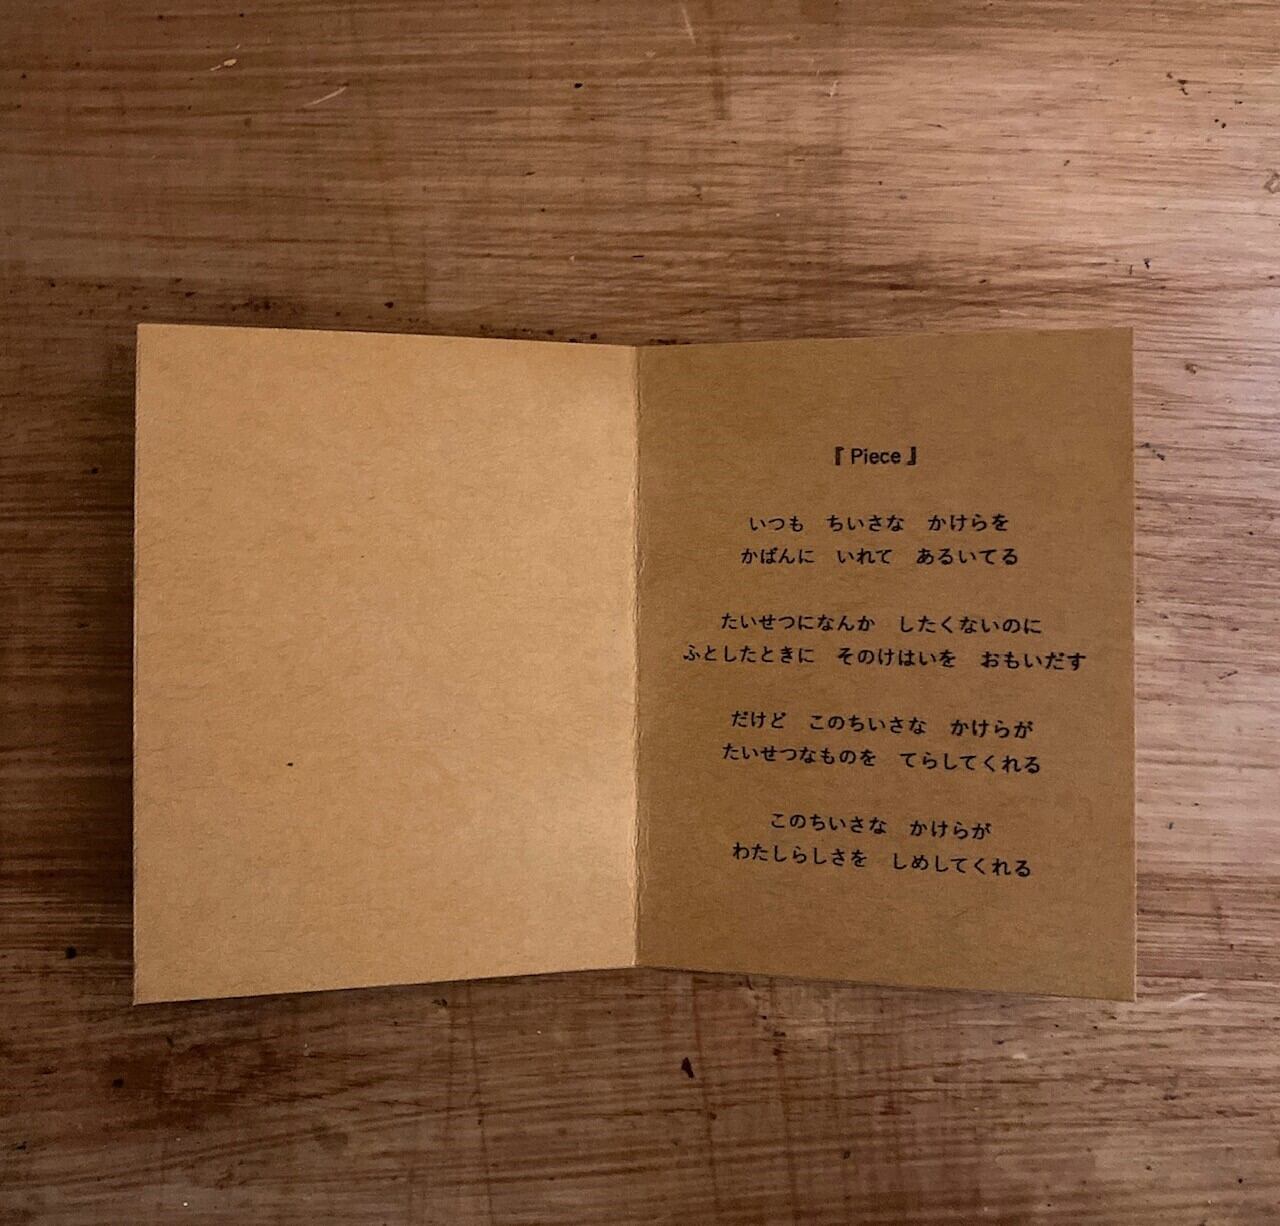 『 Piece 』
いつも　ちいさな　かけらを
かばんに　いれて　あるいてる
たいせつになんか　したくないのに
ふとしたときに　そのけはいを　おもいだす
だけど　このちいさな　かけらが
たいせつなものを　てらしてくれる
このちいさな　かけらが
わたしらしさを　しめしてくれる